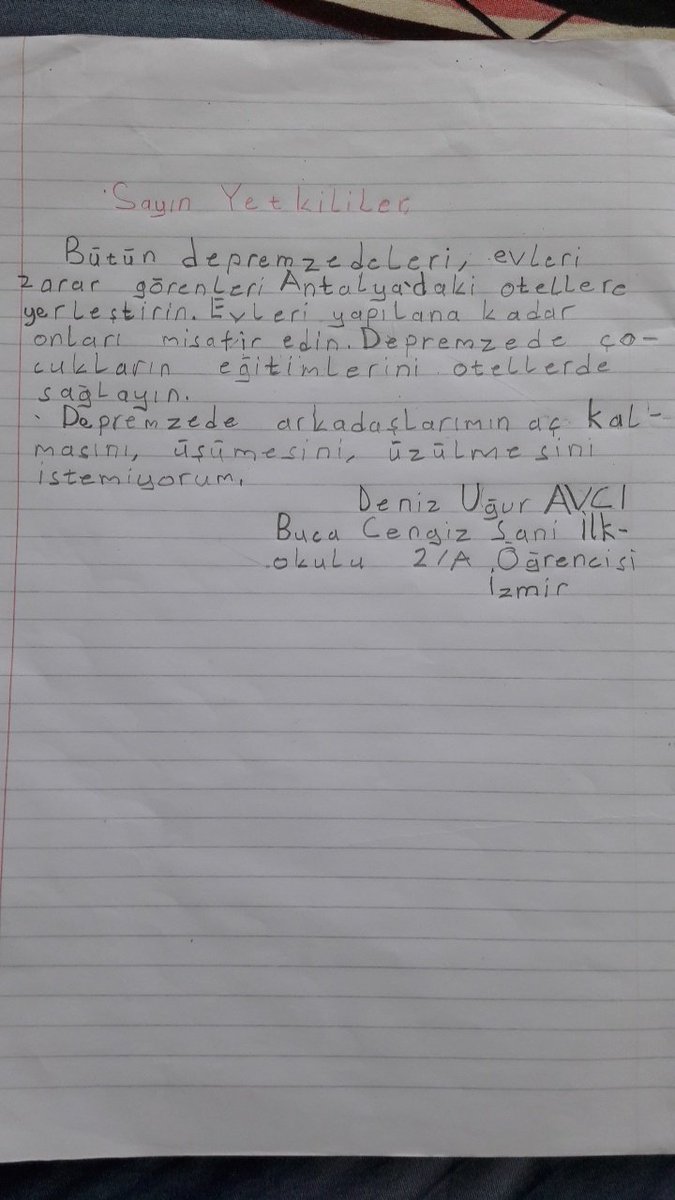 Sayın Yetkililer
Bütün depremzedeleri, evleri
zarar görenleri Antalya'daki otellere
yerleştirin. Evleri yapılana kadar
onları misafir edin. Depremzede ço-
cukların eğitimlerini otellerde
sağlayın.
Depremzede arkadaşlarımın aç kal-
masını, üşümesini, üzülmesini
istemiyorum.
Deniz Uğur AVCI
Buca Cengiz Şani İlk-
okulu 2/A Öğrencisi
İzmir